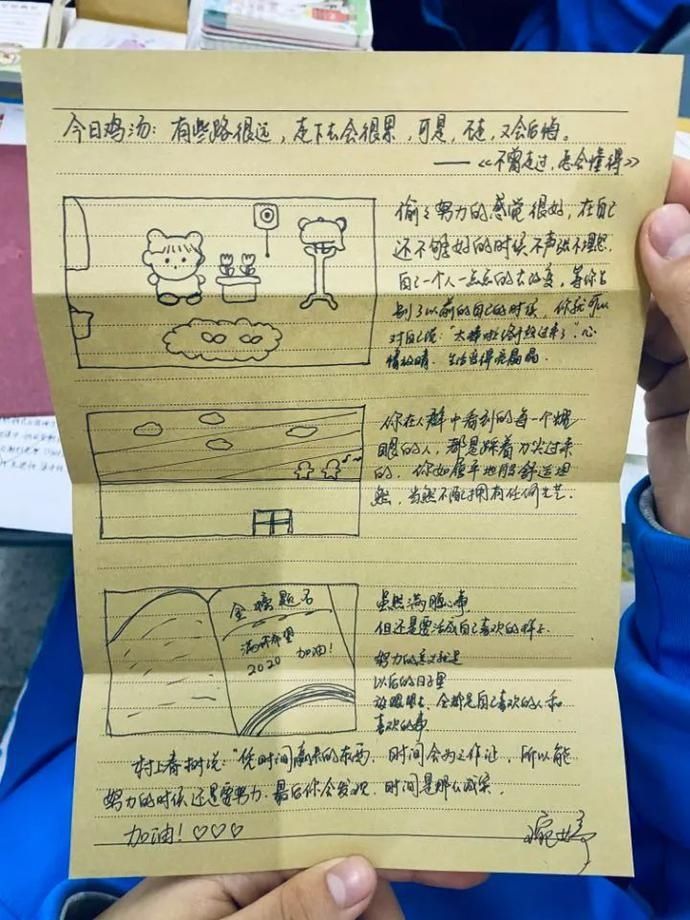 今日鸡汤：有些路很远，走下去会很累，可是，不走，又会后悔。
——《不曾走过，怎会懂得》
偷偷努力的感觉很好，在自己
还不够好的时候不声张不理怨，
自己一个人一点点的去改变，等你告
别了以前的自己的时候，你就可以
对自己说："太棒啦终于熬过来了"，心
情放晴，生活也得亮晶晶
你在人群中看到的每一个耀
眼的人，都是踩着刀尖过来
的，你如履平地般舒适坦
然，当然不配拥有任何光芒.
金榜题名
满怀希望
2020 加油！
虽然满腹心事，
但还是要活成自己喜欢的样子
努力的意义就是
以后的日子里
放眼望去，全都是自己喜欢的人和
喜欢的事
村上春树说："凭时间赢来的东西，时间会为之作证，所以能
努力的时候还是要努力，最后你会发现，时间是那么诚实
加油！♡♡♡